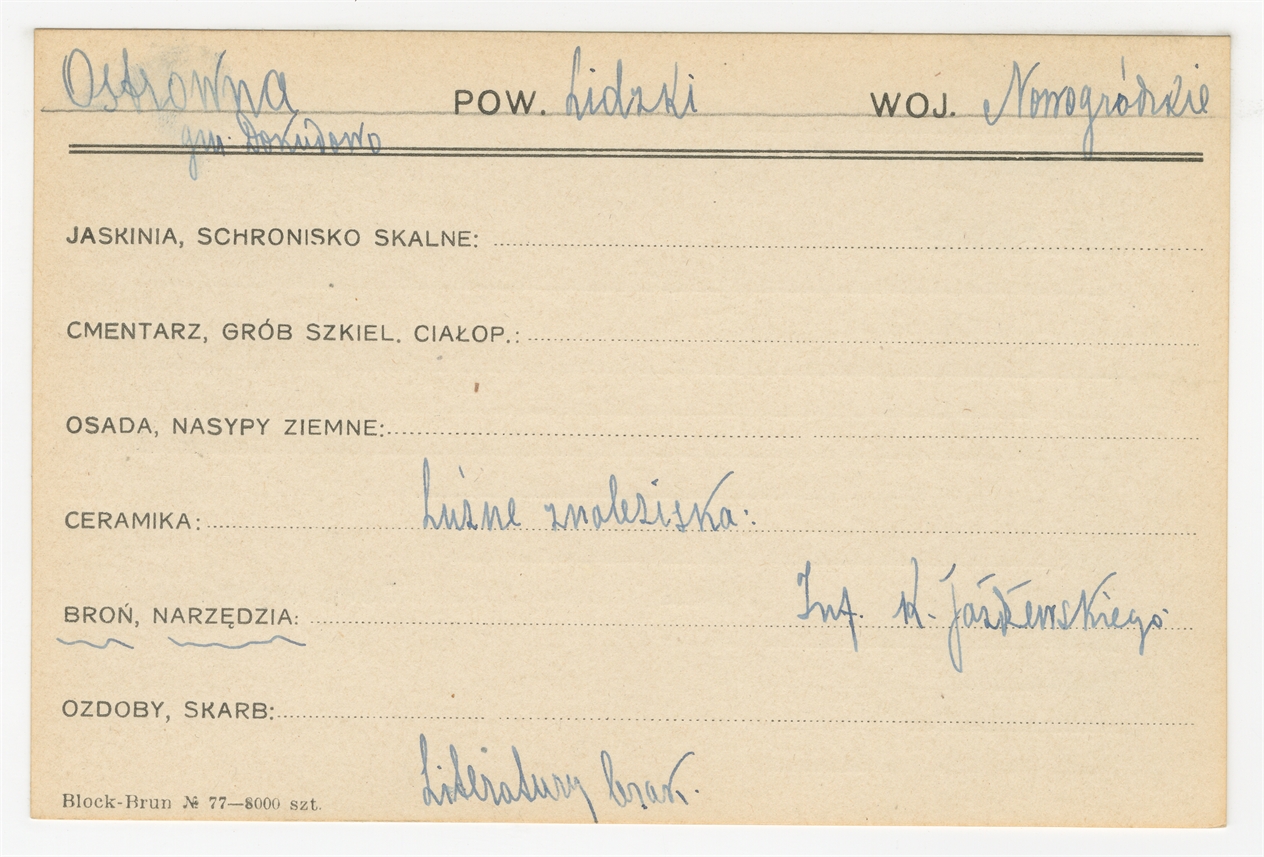 Ostrowna POW. Lidzki WOJ. Nowogródzkie
gm. Dokudowo
JASKINIA, SCHRONISKO SKALNE:
CMENTARZ, GRÓB SZKIEL. CIAŁOP.:
OSADA, NASYPY ZIEMNE:
CERAMIKA: Luźne znaleziska:
BROŃ, NARZĘDZIA: Inf. K. Jażdżewskiego
OZDOBY, SKARB:
Literatury brak.
Block-Brun № 77—8000 szt.